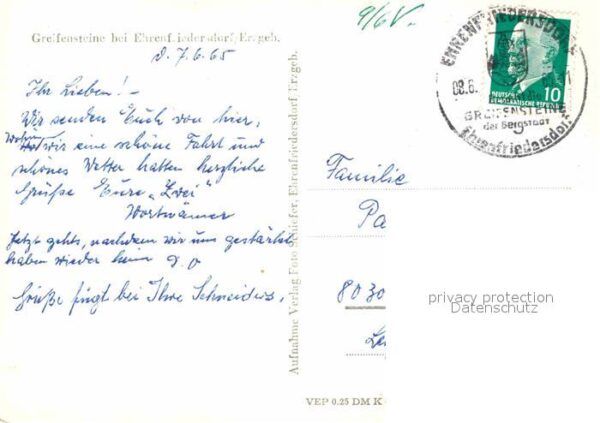 Greifensteine bei Ehrenfriedersdorf/Erzgeb.
d. 7.6.65
Ihr Lieben! –
Wir senden Euch von hier,
wohin wir eine schöne Fahrt und
schönes Wetter hatten herzliche
Grüße Eure „Zwei"
Jetzt gehts, nachdem wir uns gestärkt
haben wieder heim
Grüße
bei Ihre Schneiders,
Aufnahme Verlag Foto Schäfer, Ehrenfriedersdorf/Erzgeb.
VEP 0.25 DM K
9/6 V.
EHRENFRIEDERSDORF
08.6.
GREIFENSTEINE
der Bergstadt
Ehrenfriedersdorf
DEUTSCHE
DEMOKRATISCHE REP
10
Familie
Pa
8030
privacy protection
Datenschutz